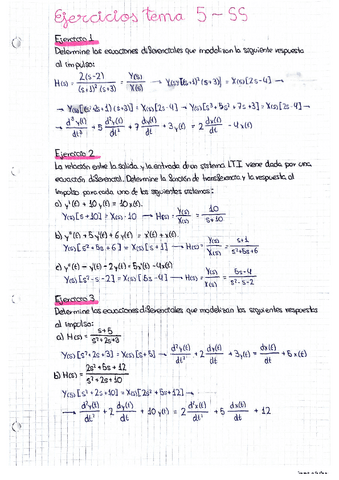 Ejercicios tema 5 - SS
Ejercicio 1
Determine las ecuaciones diferenciales que modelizan la siguiente respuesta
al impulso:
H(s) = 2(s-2) / (s+1)²(s+3) = Y(s) / X(s) → Y(s)[(s+1)²(s+3)] = X(s)[2s-4] →
→ Y(s)[(s²+2s+1)(s+3)] = X(s)[2s-4] → Y(s)[s³+5s²+7s+3] = X(s)[2s-4] →
→ d³y(t)/dt³ + 5 d²y(t)/dt² + 7 dy(t)/dt + 3y(t) = 2 dx(t)/dt - 4x(t)
Ejercicio 2
La relación entre la salida y la entrada de un sistema L.T.I viene dada por una
ecuación diferencial. Determine la función de transferencia y la respuesta al
impulso para cada uno de los siguientes sistemas:
a) y'(t) + 10y(t) = 10x(t).
Y(s)[s+10] = X(s)·10 → H(s) = Y(s)/X(s) = 10/s+10
b) y''(t) + 5y'(t) + 6y(t) = x'(t) + x(t).
Y(s)[s²+5s+6] = X(s)[s+1] → H(s) = Y(s)/X(s) = s+1/s²+5s+6
c) y''(t) - y'(t) - 2y(t) = 6x'(t) - 4x(t)
Y(s)[s²-s-2] = X(s)[6s-4] → H(s) = Y(s)/X(s) = 6s-4/s²-s-2
Ejercicio 3
Determine las ecuaciones diferenciales que modelizan las siguientes respuestas
al impulso:
a) H(s) = s+5/s²+2s+3
Y(s)[s²+2s+3] = X(s)[s+5] → d²y(t)/dt² + 2 dy(t)/dt + 3y(t) = dx(t)/dt + 5x(t)
b) H(s) = 2s²+5s+12/s²+2s+10
Y(s)[s²+2s+10] = X(s)[2s²+5s+12] →
→ d²y(t)/dt² + 2 dy(t)/dt + 10y(t) = 2 d²x(t)/dt² + 5 dx(t)/dt + 12